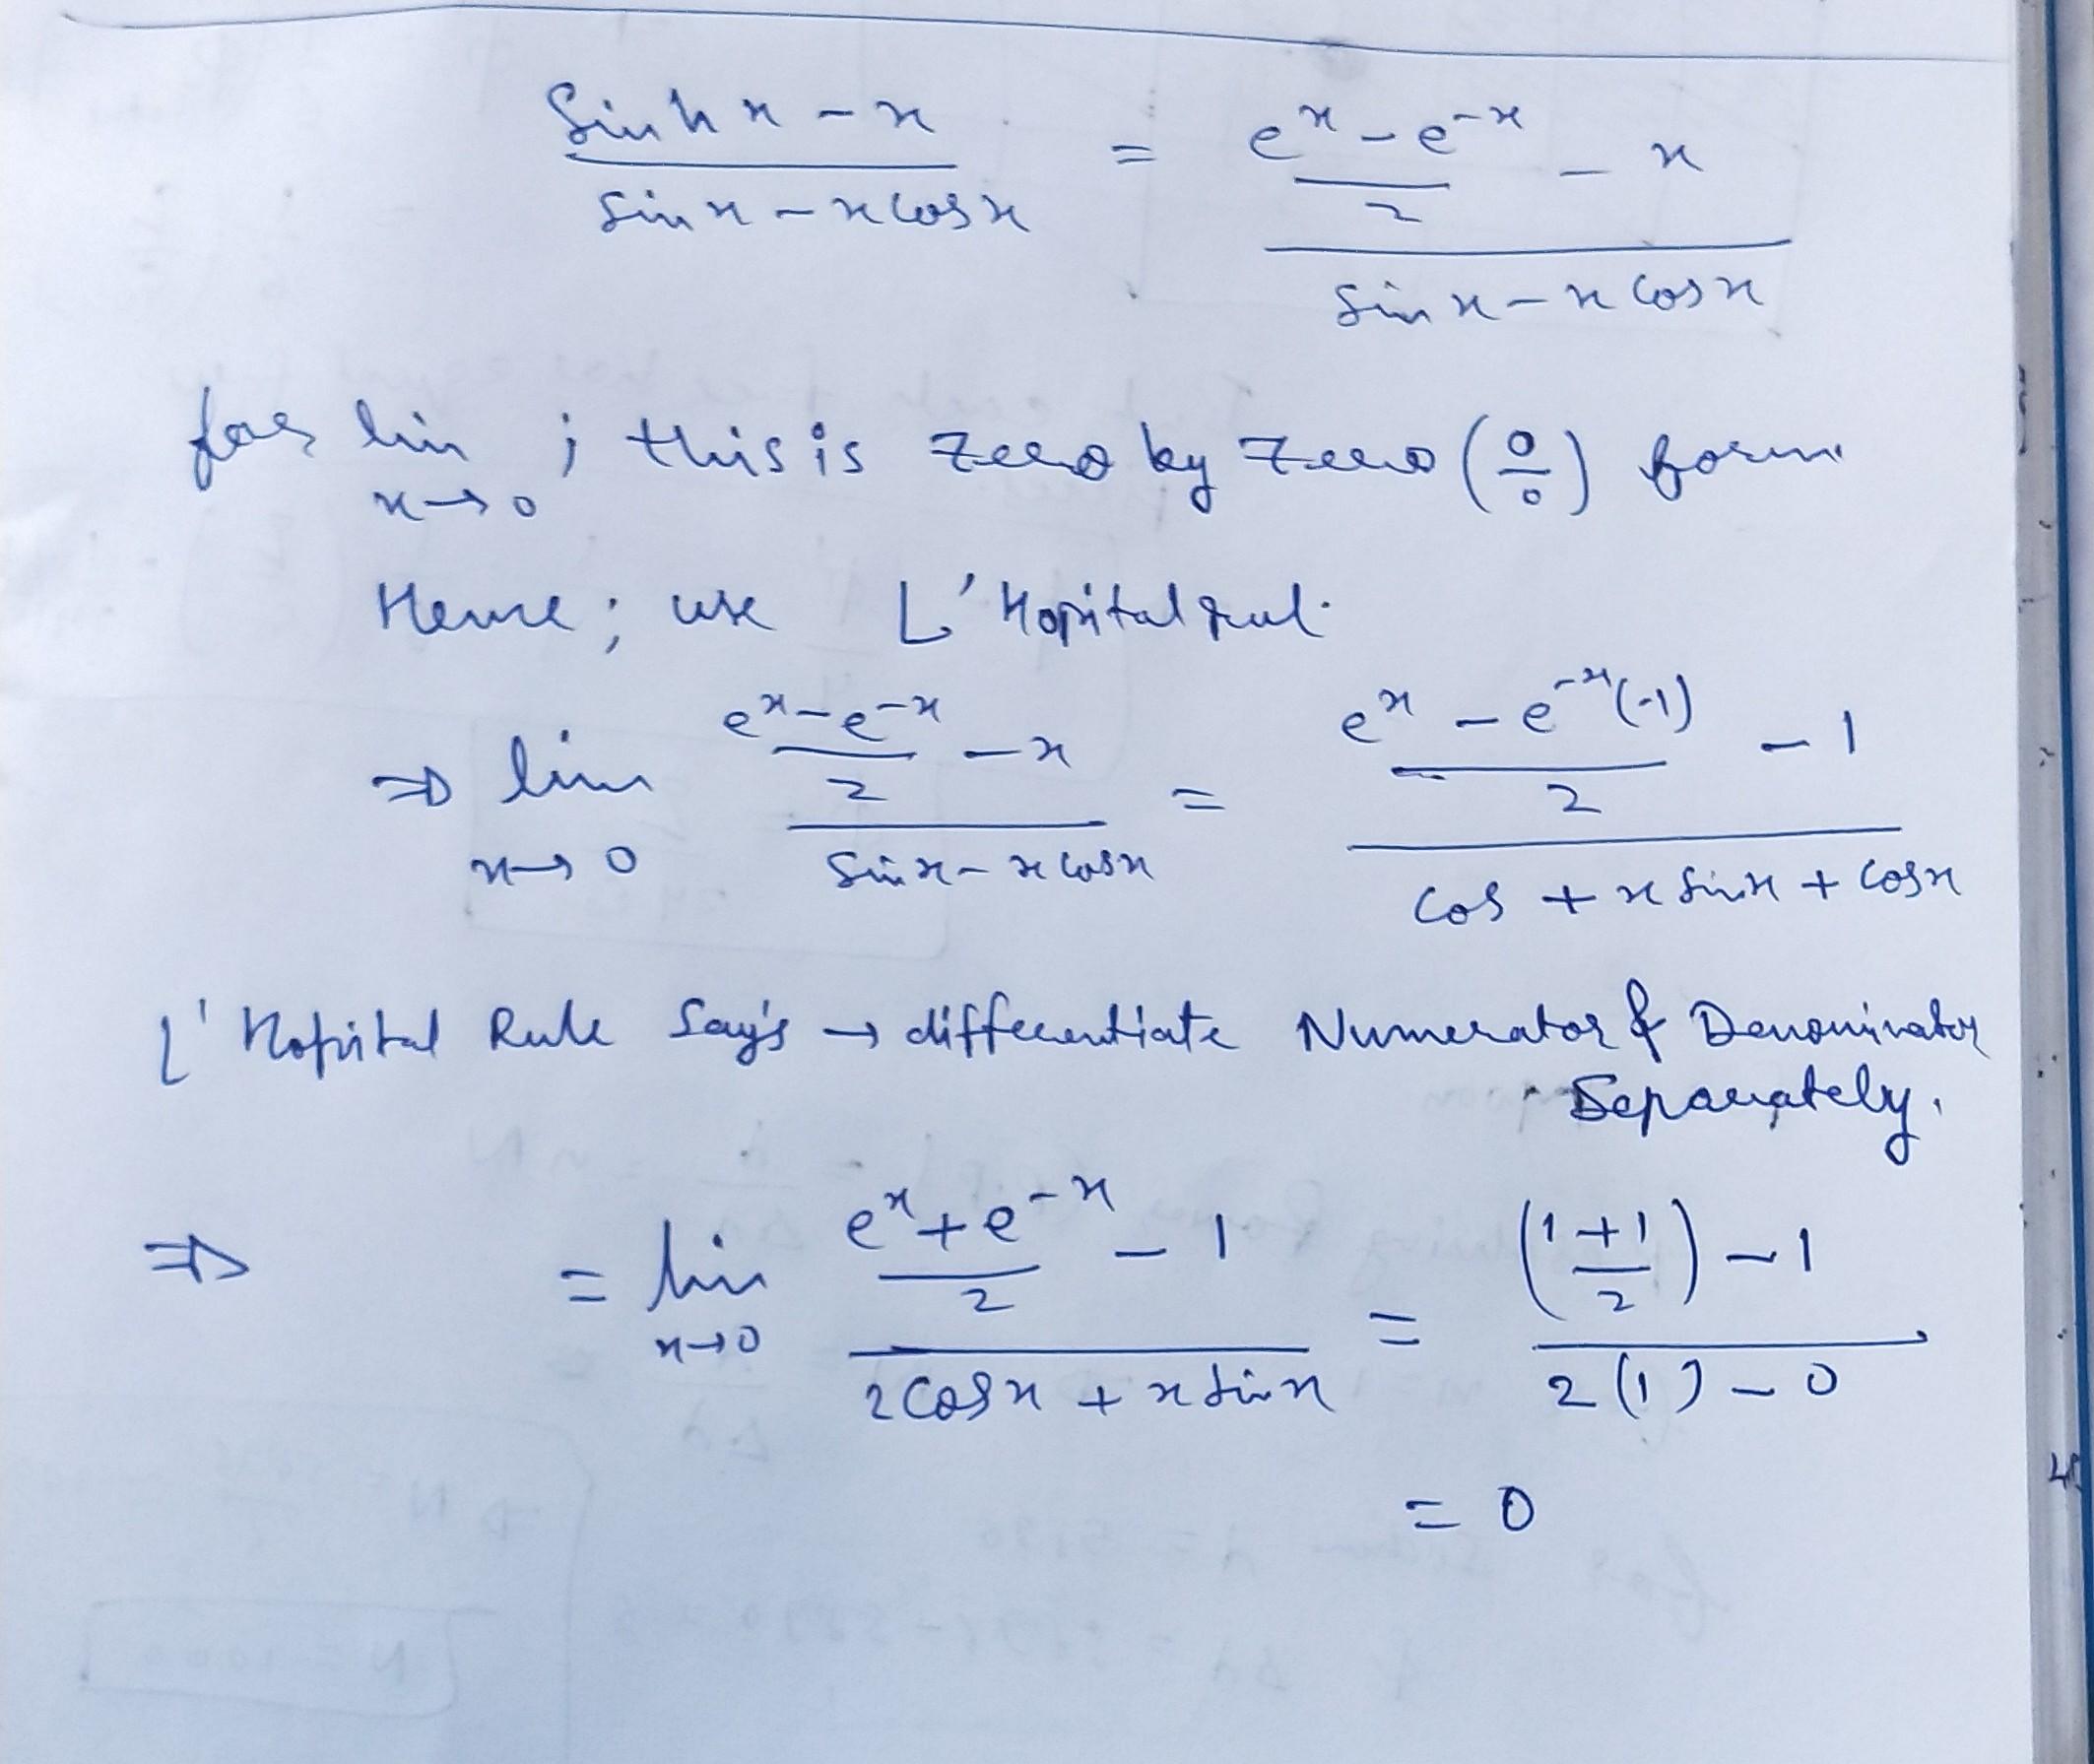 (Sinh x - x)/(sin x - x cos x) = ((e^x - e^-x)/2 - x)/(Sin x - x Cos x)
for lim x→0 ; this is zero by zero (0/0) form
Hence ; use L'Hopital rul.
⇒ lim x→0 ((e^x - e^-x)/2 - x)/(Sin x - x cos x) = ((e^x - e^-x(-1))/2 - 1)/(Cos + x Sin x + Cos x)
L'Hopital Rule Say's → differentiate Numerator & Denominator
Separately.
⇒ = lim x→0 ((e^x + e^-x)/2 - 1)/(2 Cos x + x sin x) = (((1+1)/2) - 1)/(2(1) - 0)
= 0